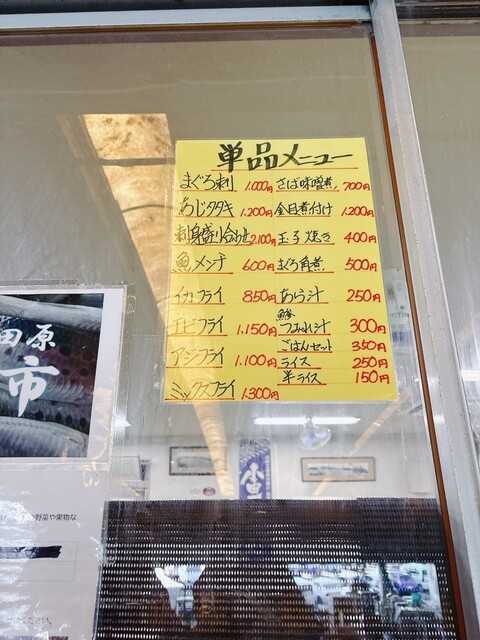 単品メニュー
まぐろ刺 1.000円
あじタタキ 1.200円
刺身盛り合わせ 2.100円
魚メンチ 600円
イカフライ 850円
エビフライ 1.150円
アジフライ 1.100円
ミックスフライ 1.300円
さば味噌煮 700円
金目煮付け 1.200円
玉子焼き 400円
まぐろ角煮 500円
あら汁 250円
鯵
つみれ汁 300円
ごはんセット 350円
ライス 250円
半ライス 150円
田原
市
野菜や果物な
ください。